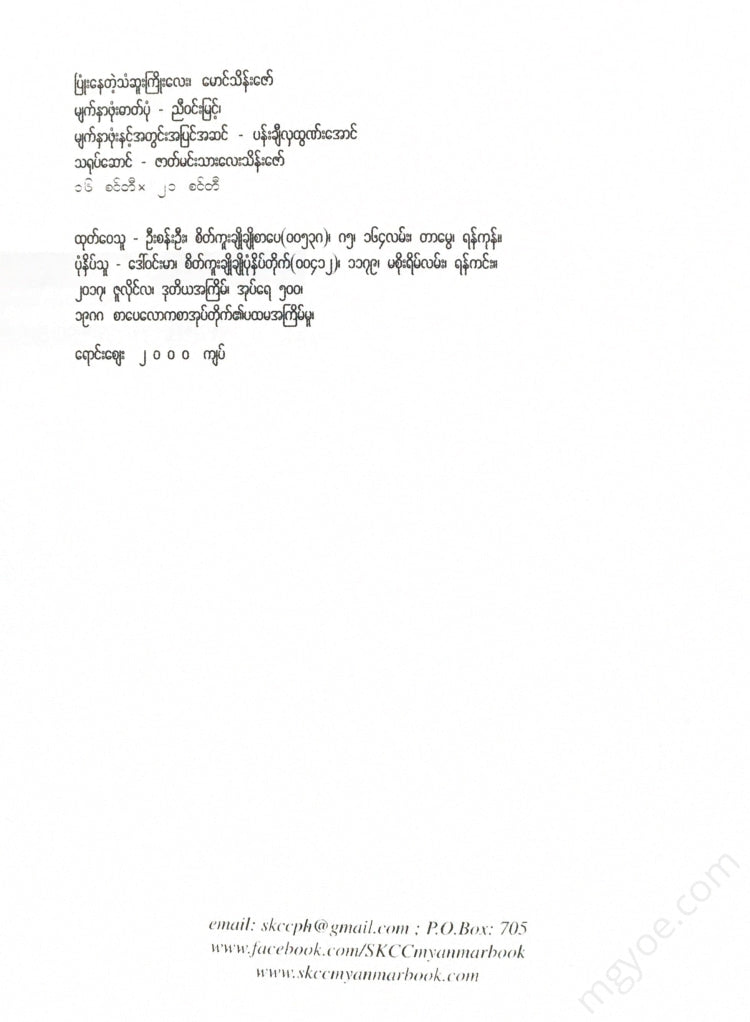 ပြုံးနေတဲ့သံဆူးကြိုးလေး၊ မောင်သိန်းဇော်
မျက်နှာဖုံးဓာတ်ပုံ - ညီဝင်းမြင့်၊
မျက်နှာဖုံးနှင့်အတွင်းအပြင်အဆင် - ပန်းချီလှထွဏ်းအောင်
သရုပ်ဆောင် - ဇာတ်မင်းသားလေးသိန်းဇော်
၁၆ စင်တီ × ၂၁ စင်တီ
ထုတ်ဝေသူ - ဦးစန်းဦး၊ စိတ်ကူးချိုချိုစာပေ(၀၀၅၃၈)၊ ၈၅၊ ၁၆၄လမ်း၊ တာမွေ၊ ရန်ကုန်။
ပုံနှိပ်သူ - ဒေါ်ဝင်းမာ၊ စိတ်ကူးချိုချိုပုံနှိပ်တိုက်(၀၀၄၁၂)၊ ၁၁၇၉၊ မစိုးရိမ်လမ်း၊ ရန်ကင်း။
၂၀၁၇၊ ဇူလိုင်လ၊ ဒုတိယအကြိမ်၊ အုပ်ရေ ၅၀၀၊
၁၉၈၈ စာပေလောကစာအုပ်တိုက်၏ပထမအကြိမ်မူ၊
ရောင်းဈေး ၂ ၀ ၀ ၀ ကျပ်
email: skccph@gmail.com ; P.O.Box: 705
www.facebook.com/SKCCmyanmarbook
www.skccmyanmarbook.com
mgyoe.com